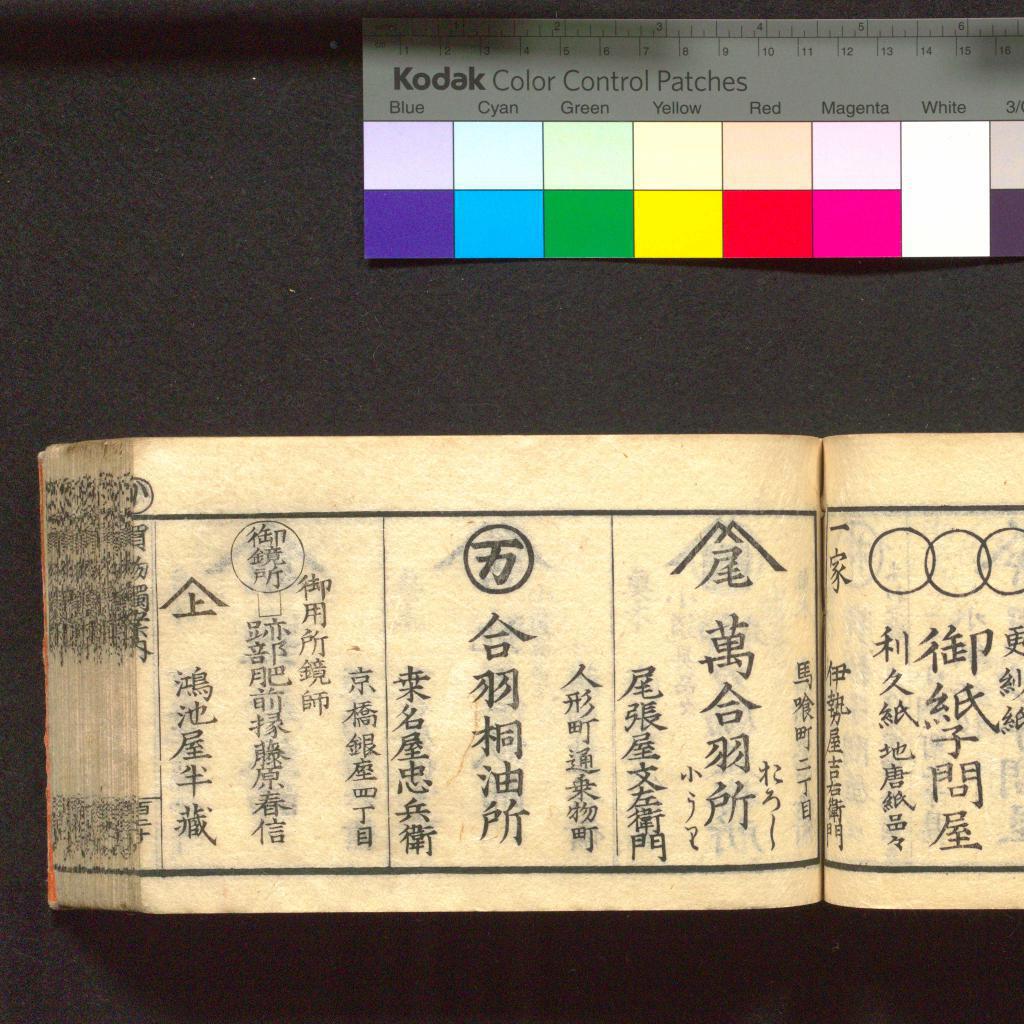 Kodak Color Control Patches
Blue Cyan Green Yellow Red Magenta White
更紗紙
御紙子問屋
利久紙 地唐紙品々
一家 伊勢屋吉右衛門
馬喰町二丁目
尾 萬合羽所
おろし
小うり
尾張屋文左衛門
人形町通乗物町
万 合羽桐油所
桒名屋忠兵衛
京橋銀座四丁目
御用所鏡師
御鏡所
跡部肥前掾藤原春信
上 鴻池屋半藏
買物獨案内